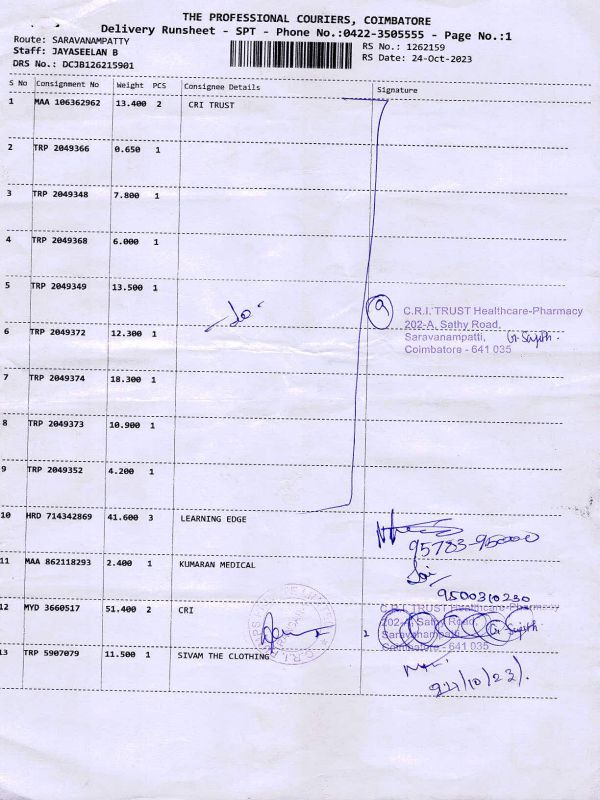 THE PROFESSIONAL COURIERS, COIMBATORE
Delivery Runsheet - SPT - Phone No.:0422-3505555 - Page No.:1
Route: SARAVANAMPATTY
RS No.: 1262159
Staff: JAYASEELAN B
RS Date: 24-Oct-2023
DRS No.: DCJB126215901
S No Consignment No Weight PCS Consignee Details Signature
1 MAA 106362962 13.400 2 CRI TRUST
2 TRP 2049366 0.650 1
3 TRP 2049348 7.800 1
4 TRP 2049368 6.000 1
5 TRP 2049349 13.500 1
9
C.R.I. TRUST Healthcare-Pharmacy
202-A, Sathy Road,
Saravanampatti,
Coimbatore - 641 035
6 TRP 2049372 12.300 1
7 TRP 2049374 18.300 1
8 TRP 2049373 10.900 1
9 TRP 2049352 4.200 1
10 HRD 714342869 41.600 3 LEARNING EDGE
95783-95000
11 MAA 862118293 2.400 1 KUMARAN MEDICAL
9500310230
12 MYD 3660517 51.400 2 CRI
2
C.R.I. TRUST Healthcare-Pharmacy
202-A, Sathy Road,
Saravanampatti,
Coimbatore - 641 035
13 TRP 5907079 11.500 1 SIVAM THE CLOTHING